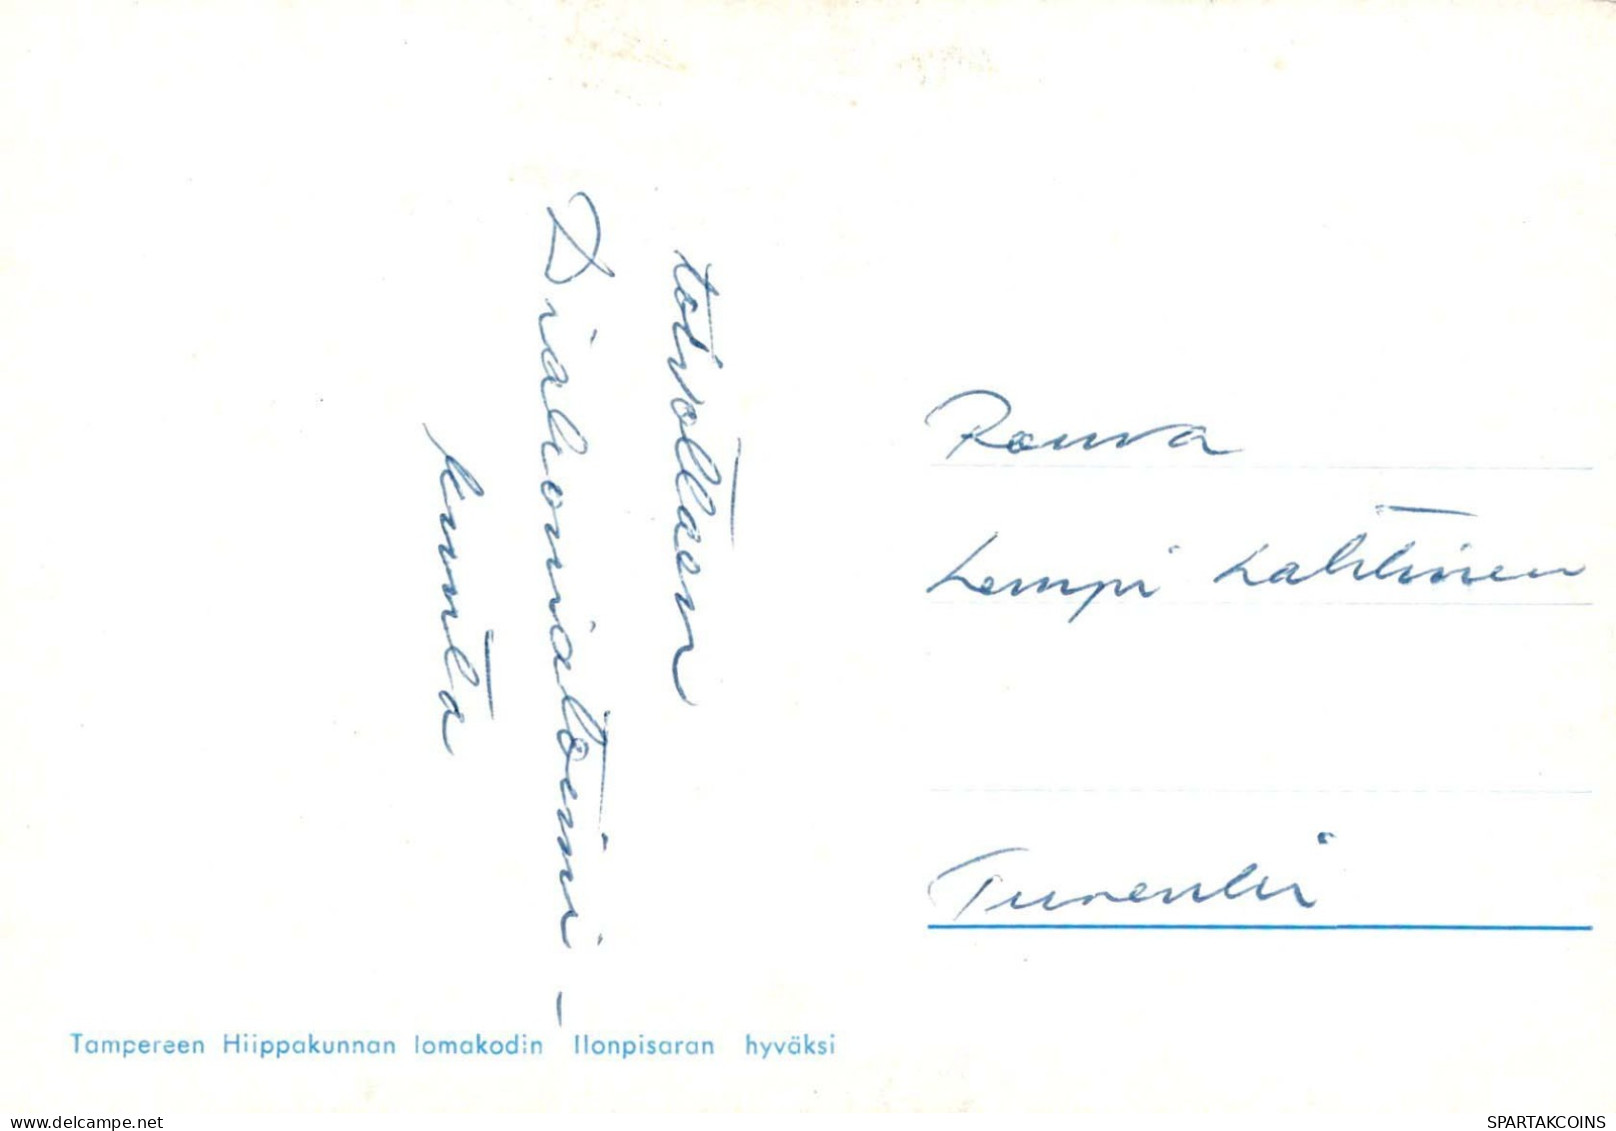 toivottaen
Diakoniatoimi-
kunta
Rouva
Lempi Lahtinen
Turenki
Tampereen Hiippakunnan lomakodin Ilonpisaran hyväksi
delcampe.net
SPARTAKCOINS